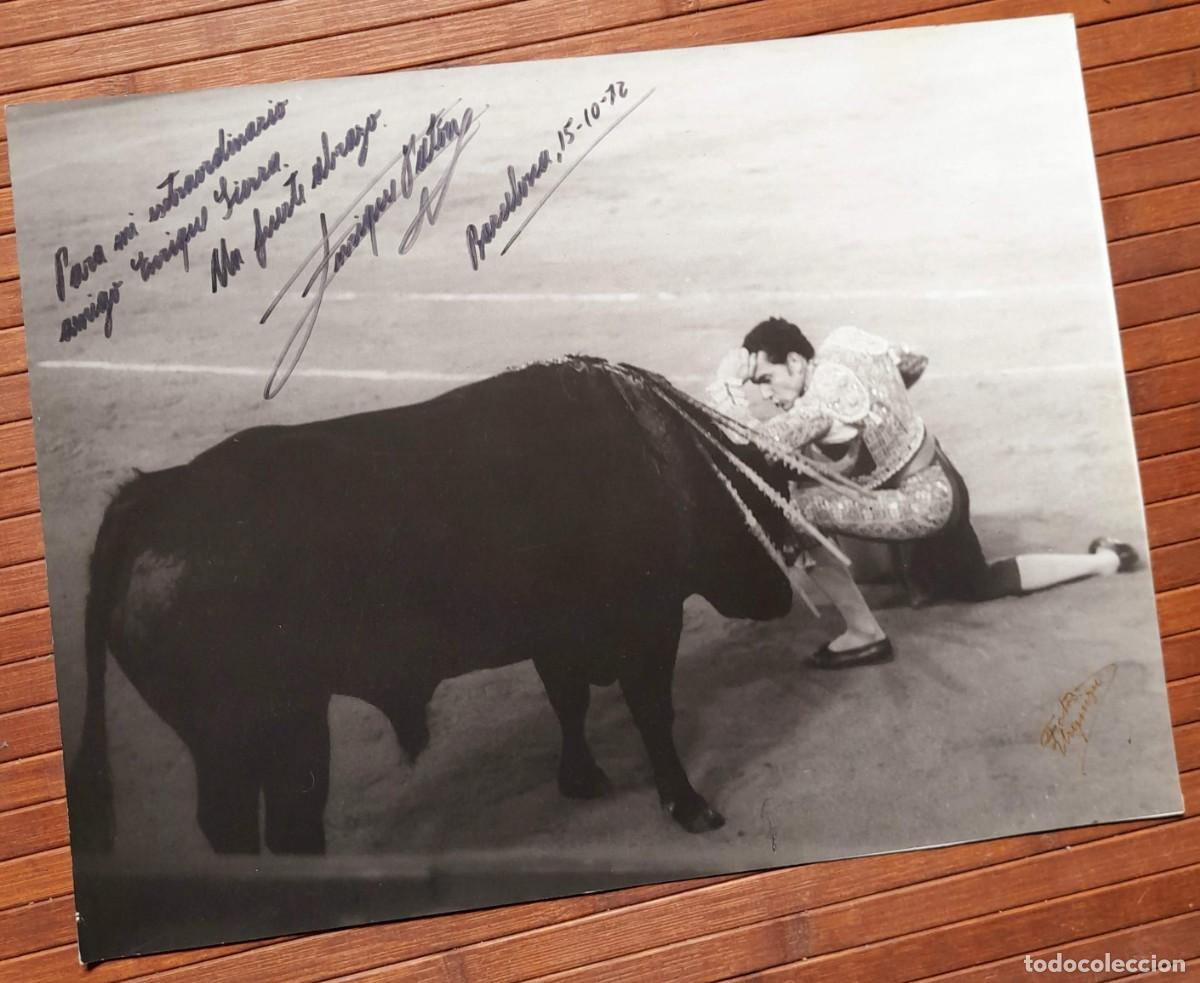 Para mi extraordinario
amigo Enrique Sierra.
Un fuerte abrazo.
Enrique Patón
Barcelona, 15-10-72
todocoleccion